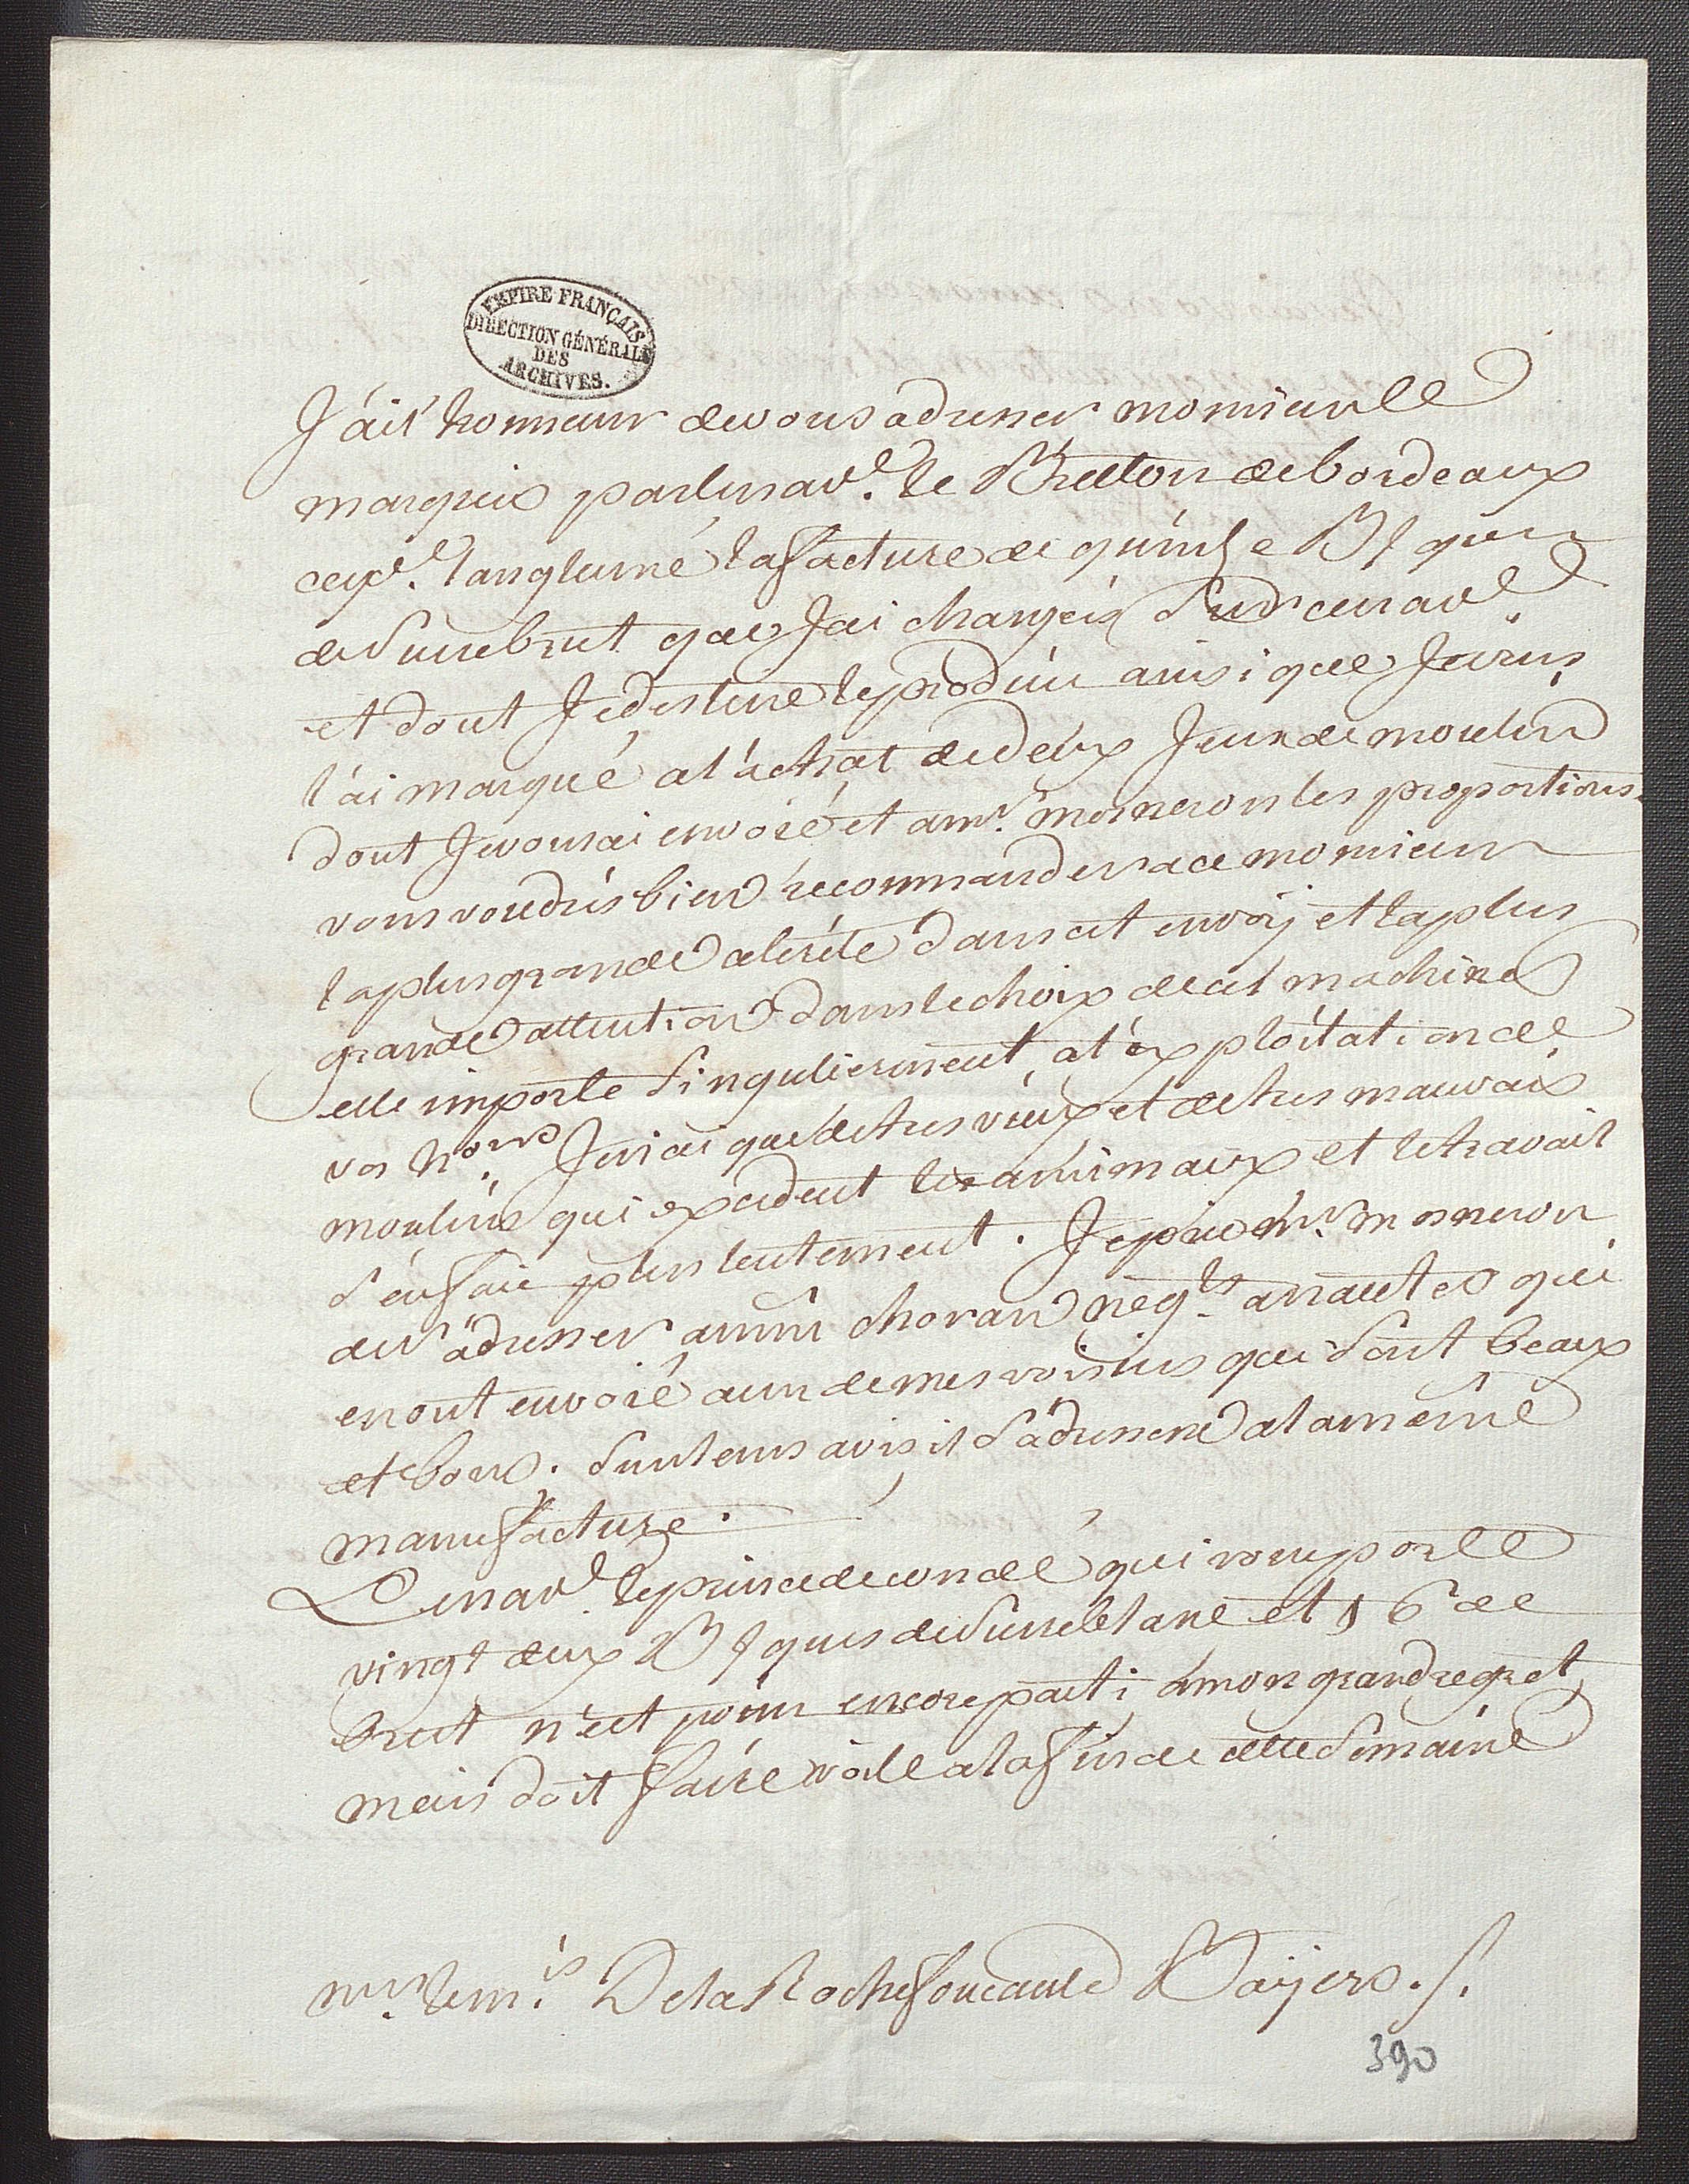 EMPIRE FRANÇAIS
DIRECTION GÉNÉRALE
DES
ARCHIVES.
J'ai l'honneur de vous adresser monsieur le
marquis par le nav.e le Breton de bordeaux
cap.e langlumé la facture de quinze Bques
de sucre brut que J'ai chargées sur ce nav.e
et dont Je destine le produit ainsi que Je vous
l'ai marqué a l'achat de deux Jeux de moulins
dont Je vous ai envoié et a mr. mosneron les proportions.
vous voudrés bien recommander a ce monsieur
la plus grande celerité dans cet envoy et la plus
grande attention dans le choix de ces machines
elle importe singulierement a l'exploitation de
vos h.ons Je n'ai que de tres vieux et de tres mauvais
moulins qui excedent les animaux et le travail
s'en fait plus lentement. Je prie mr. mosneron
de s'adresser a mrs choran neg.ts a nantes qui
en ont envoié a un de mes voisins qui sont beaux
et bons. sur leurs avis il s'adressera a la même
manufacture.
Le nav.e le prince de condé qui vous porte
vingt deux Bques de sucre blanc et 16 de
brut n'est point encore parti a mon grand regret
mais doit faire voile a la fin de cette semaine
mr. le m.is De la Rochefoucauld Bayers./.
390